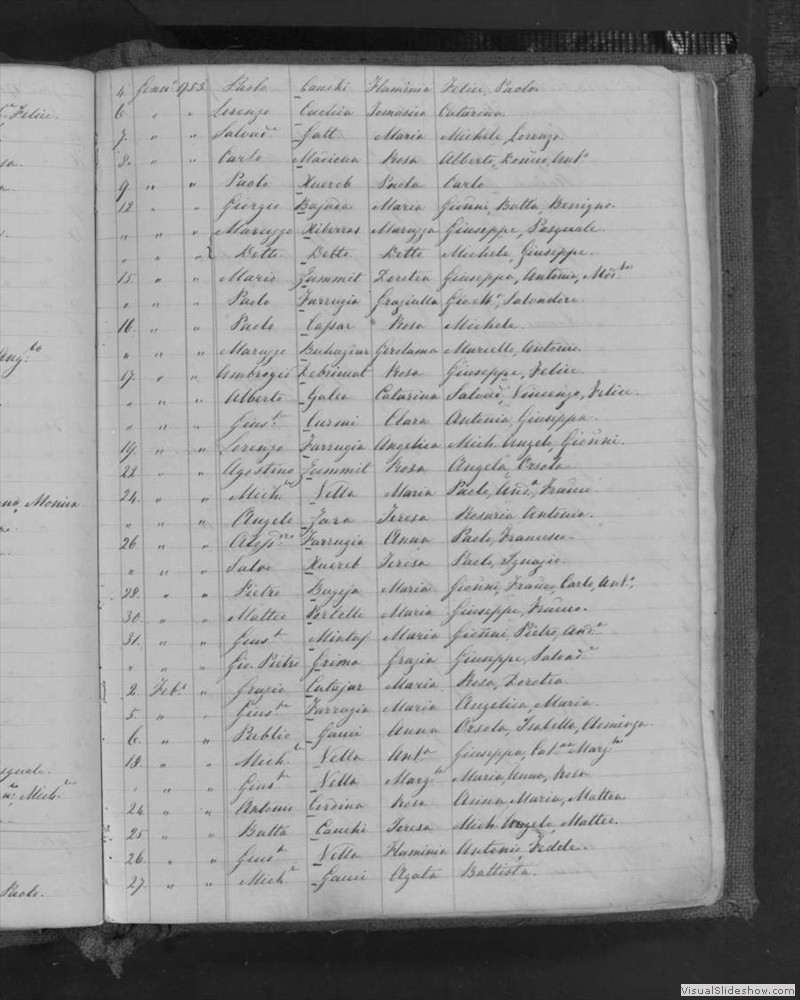 4. Genn.º 1753. Paolo Cauchi Flaminia Felice, Paolo
6. " " Lorenzo Cuchia Tomasia Catarina
7. " " Salvad.e Gatt Maria Michele, Lorenzo.
8. " " Carlo Rosa Alberto, Ant.º
9. " " Paolo Xuereb Paola Carlo
12. " " Giorgio Bajada Maria Gioñni, Batta, Benigno
" " " Maruzzo Xiberras Maruzza Giuseppe, Pasquale
" " " Dette Dette Dette Michele, Giuseppe.
15. " " Mario Zammit Loretea Giuseppa, Antonio,
" " " Paolo Farrugia Grazialla Salvadore
16. " " Paolo Capsar Rosa Michele.
" " " Maruzzo Buhagiar Gerolama Marielle, Antonio
17. " " Ambrogio Rosa Giuseppe, Felice
" " " Alberto Galea Catarina Vincenzo, Felice.
" " " Gius.e Curmi Clara Antonia, Giuseppa.
19. " " Lorenzo Farrugia Angelica Mich. Angelo, Gioñni.
22. " " Agostino Zammit Rosa Angela, Orsola.
24. " " Mich.le Vella Maria Paolo, And.a, Frañco
" " " Angelo Zara Teresa Rosaria Antonia.
26 " " Farrugia Anna Paolo, Francesco.
" " " Salvo Xuereb Teresa Paolo, Ignazio.
28. " " Pietro Bugeja Maria Gioñni, Frañco, Carlo, Ant.º
30. " " Matteo Portelli Maria Giuseppe, Frañco.
31. " " Gius.e Maria Gioñni, Pietro, And.a
" " " Gio. Pietro Grima Grazia Giuseppe, Salvad.e
2. Feb.º " Grazio Cutajar Maria Rosa, Loretea.
5. " " Gius.e Farrugia Maria Angelica, Maria.
6. " " Publio Gauci Anna Orsola, Isabella,
13. " " Mich.e Vella Ant.a Giuseppa, Cat.na Marg.ta
" " " Gius.e Vella Marg.ta Maria, Anna, Rosa
24. " " Antonio Cordina Rosa Anna, Maria, Mattea
25. " " Batta Cauchi Teresa Mich. Angelo, Matteo.
26. " " Gius.e Vella Flaminia Antonio, Fedele.
27. " " Mich.e Gauci Agata Battista.
Felice.
Ang.lo
Monica
Mich.le
Paolo.
VisualSlideshow.com